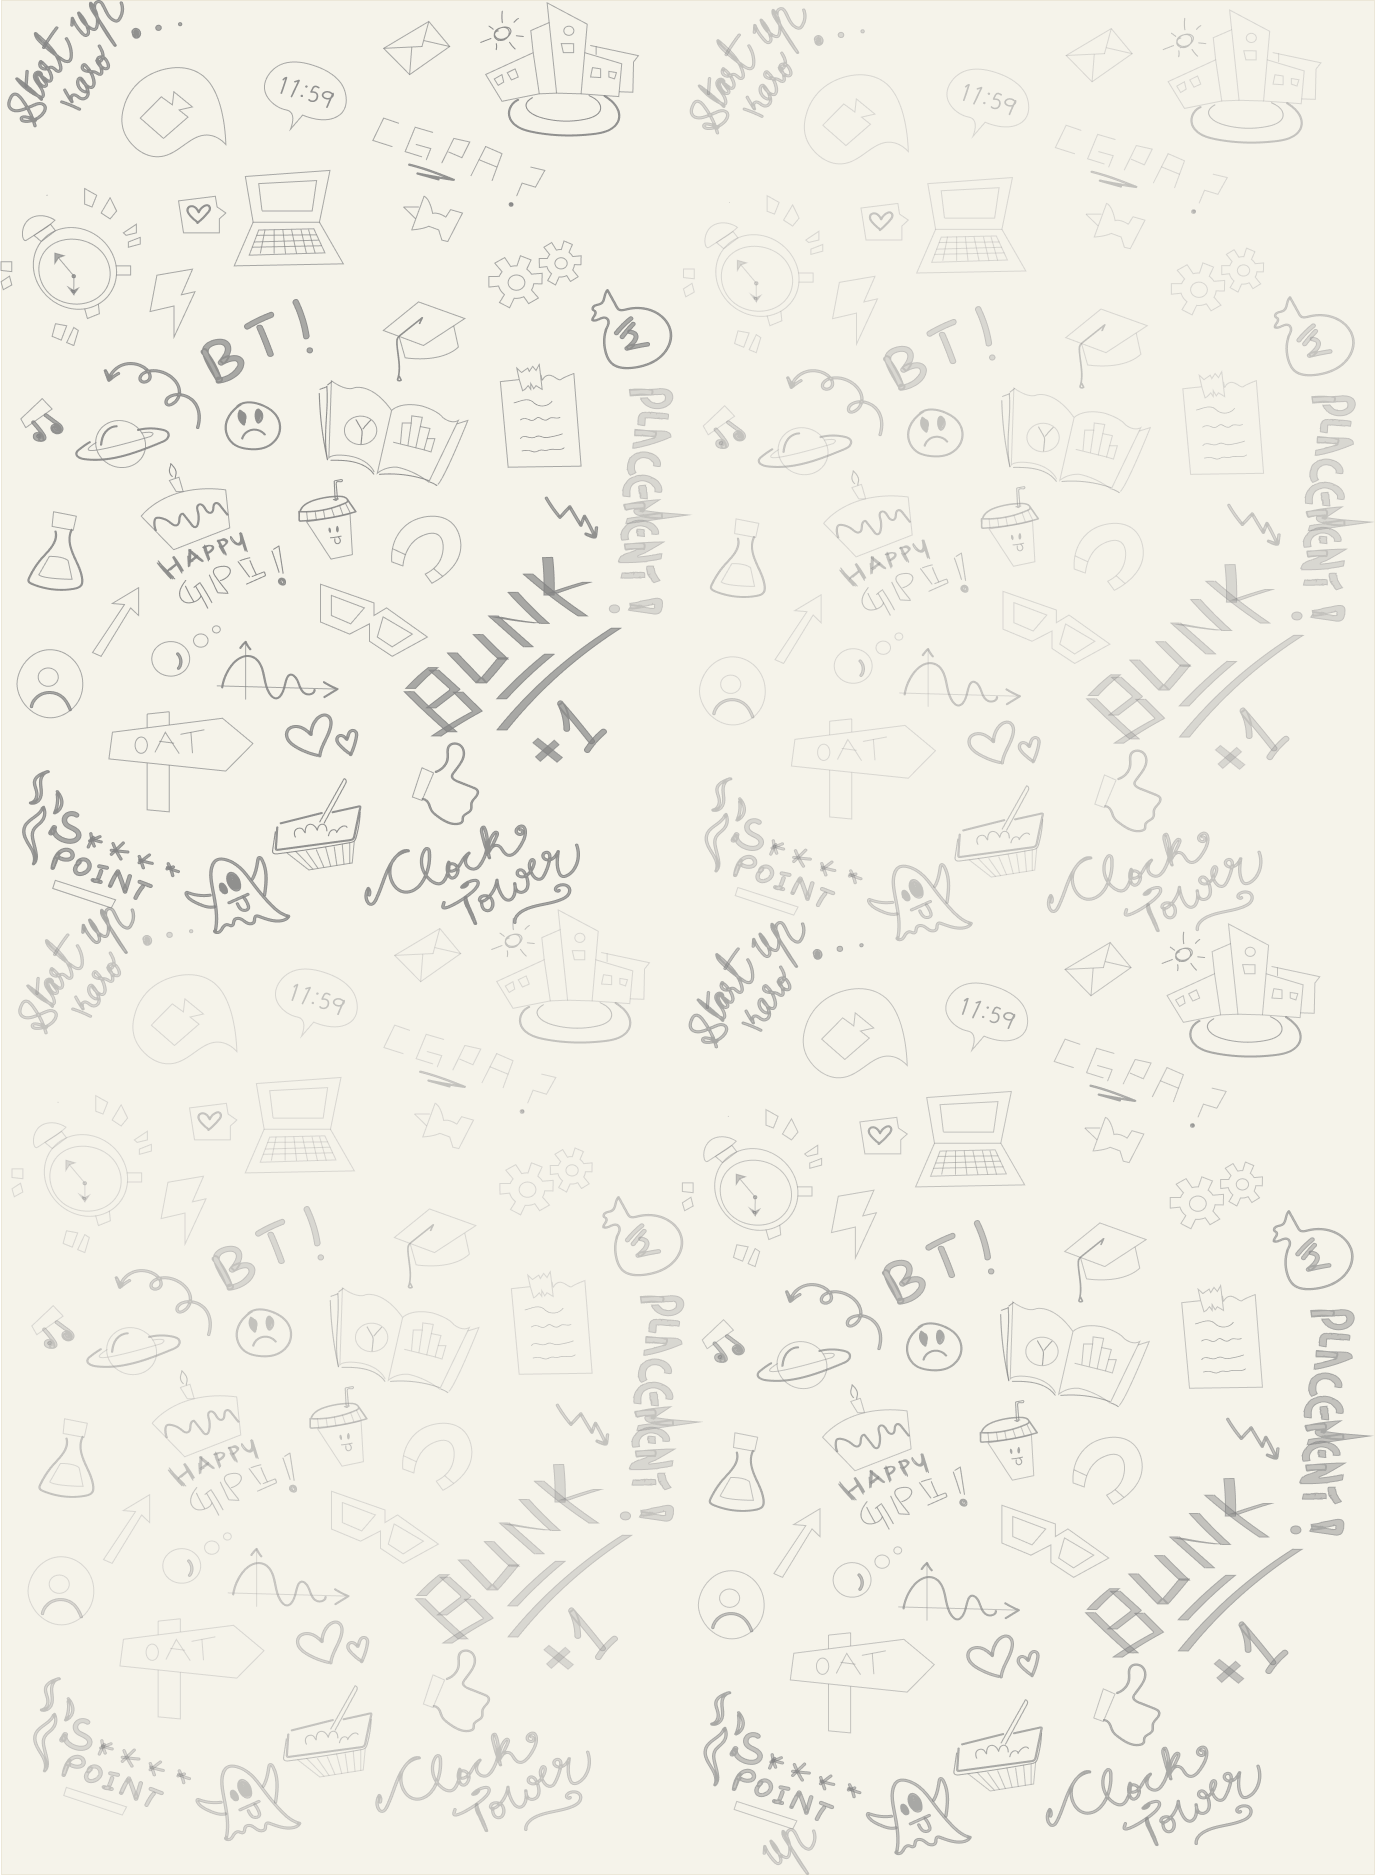 Start up
karo...
11:59
CGPA?
BT!
PLACEMENT!
HAPPY
GPL!
BUNK
x1
OAT
'S****
POINT
Clock
Tower
Start up
karo...
11:59
CGPA?
BT!
PLACEMENT!
HAPPY
GPL!
BUNK
x1
OAT
'S****
POINT
Clock
Tower
Start up
karo...
11:59
CGPA?
BT!
PLACEMENT!
HAPPY
GPL!
BUNK
x1
OAT
'S****
POINT
Clock
Tower
Start up
karo...
11:59
CGPA?
BT!
PLACEMENT!
HAPPY
GPL!
BUNK
x1
OAT
'S****
POINT
Clock
Tower
up